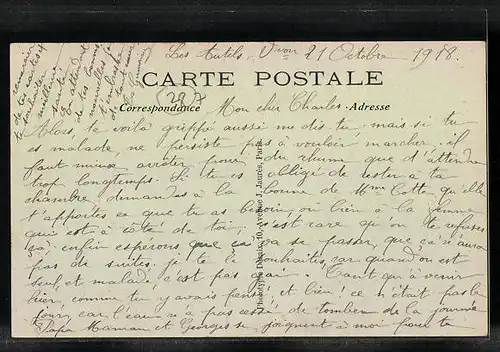 Les Autels, 21 Octobre 1918.
CARTE POSTALE
Correspondance
Adresse
207
Mon cher Charles
Alors, te voilà grippé aussi me dis tu, mais si tu
es malade, ne persiste pas à vouloir marcher, il
faut mieux arrêter pour du rhume que d'attendre
trop longtemps. Si tu es obligé de rester à ta
chambre, demandes à la bonne de Mme Cotte qu'elle
t'apportes ce que tu as besoin, ou bien à la femme
qui est à côté de toi, c'est rare qu'on te refuses
ça, enfin espérons que ça va se passer, que ça n'aura
pas de suites, je te le souhaites, car quand on est
seul et malade, c'est pas gai. Tant qu'à venir
hier, comme tu y avais pensé, et bien! ce n'était pas le
jour, car l'eau n'a pas cessé de tomber de la journée
Papa Maman et Georges se joignent à moi pour te
remercier
de ta carte et
te souhaiter
meilleure
santé
En attendant
de tes bonnes
nouvelles je
t'embrasse
Phototypie Desaix, 10, Avenue J. Jaurès, Paris.